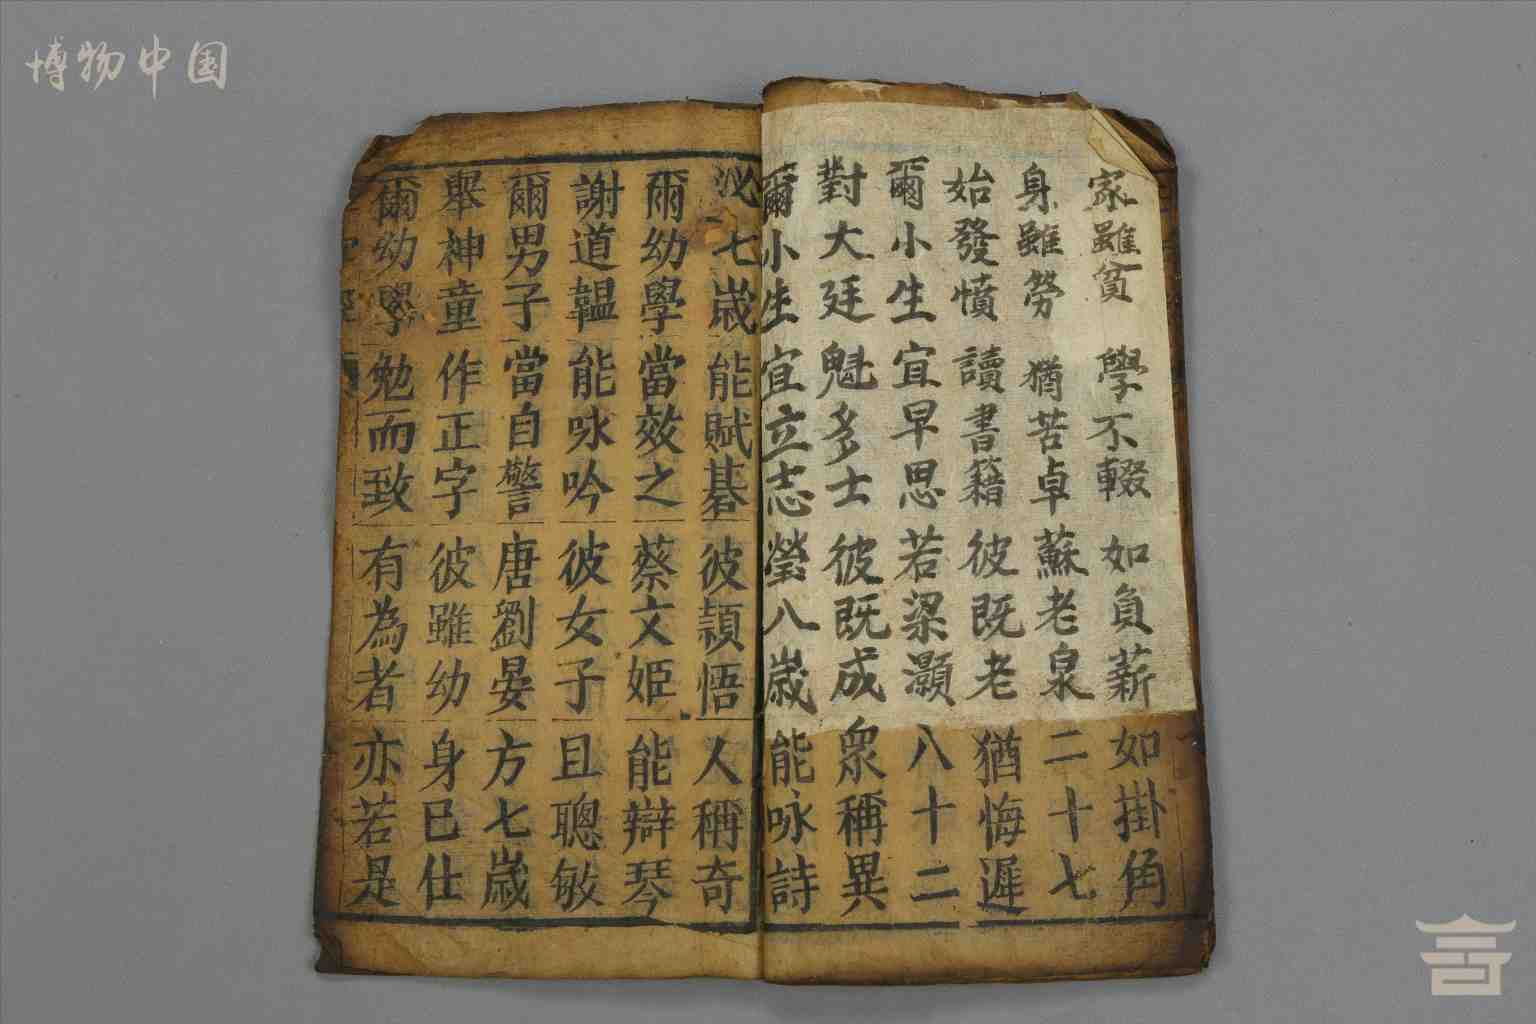 博物中国
家雖貧 學不輟 如負薪 如掛角
身雖勞 猶苦卓 蘇老泉 二十七
始發憤 讀書籍 彼既老 猶悔遲
爾小生 宜早思 若梁灝 八十二
對大廷 魁多士 彼既成 衆稱異
爾小生 宜立志 瑩八歲 能咏詩
泌七歲 能賦碁 彼頴悟 人稱奇
爾幼學 當效之 蔡文姬 能辯琴
謝道韞 能咏吟 彼女子 且聰敏
爾男子 當自警 唐劉晏 方七歲
舉神童 作正字 彼雖幼 身已仕
爾幼學 勉而致 有為者 亦若是